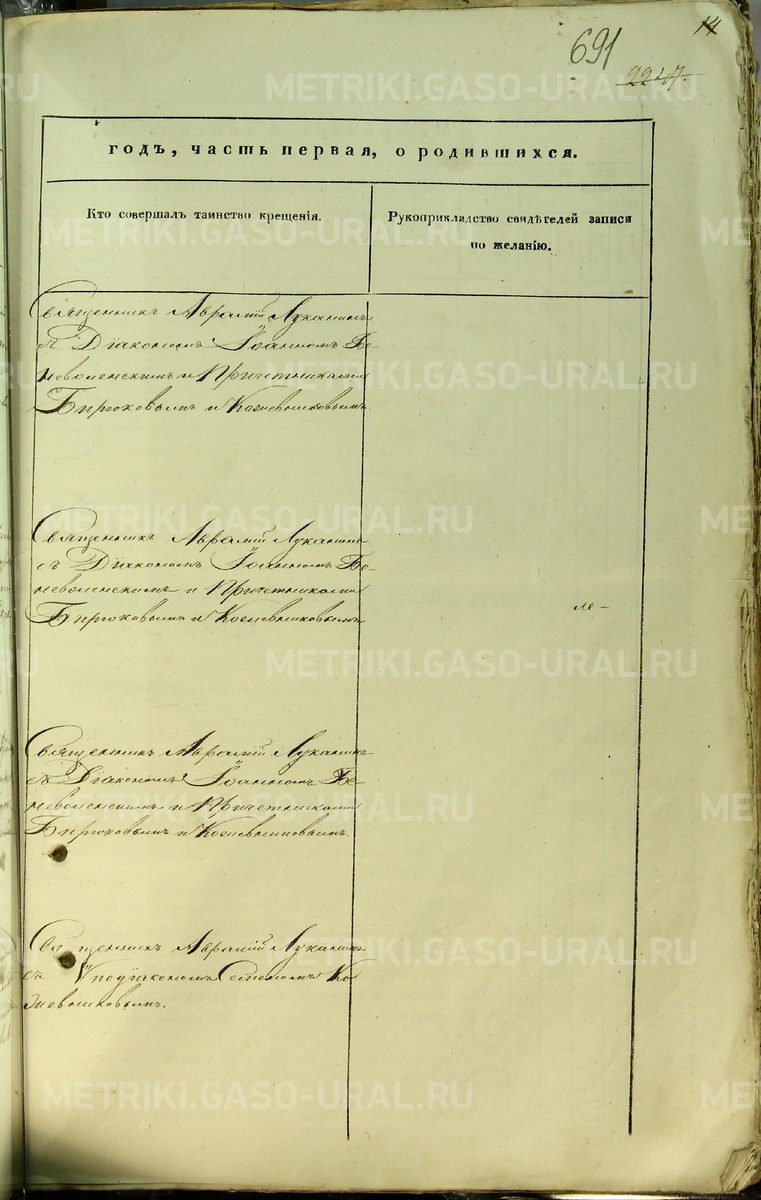 14
691
2247.
годъ, часть первая, о родившихся.
Кто совершалъ таинство крещенія.
Рукоприкладство свидѣтелей записи
по желанію.
Священникъ Авраамій Луканинъ
съ Діакономъ Іоанномъ Бе-
неволенскимъ и Причетниками
Бирюковымъ и Кожевниковымъ.
Священникъ Авраамій Луканинъ
съ Діакономъ Іоанномъ Бе-
неволенскимъ и Причетниками
Бирюковымъ и Кожевниковымъ
Священникъ Авраамій Луканинъ
съ Діакономъ Іоанномъ Бе-
неволенскимъ и Причетниками
Бирюковымъ и Кожевниковымъ.
Священникъ Авраамій Луканинъ
съ Ѵподіакономъ Стефаномъ Ко
жевниковымъ.
METRIKI.GASO-URAL.RU